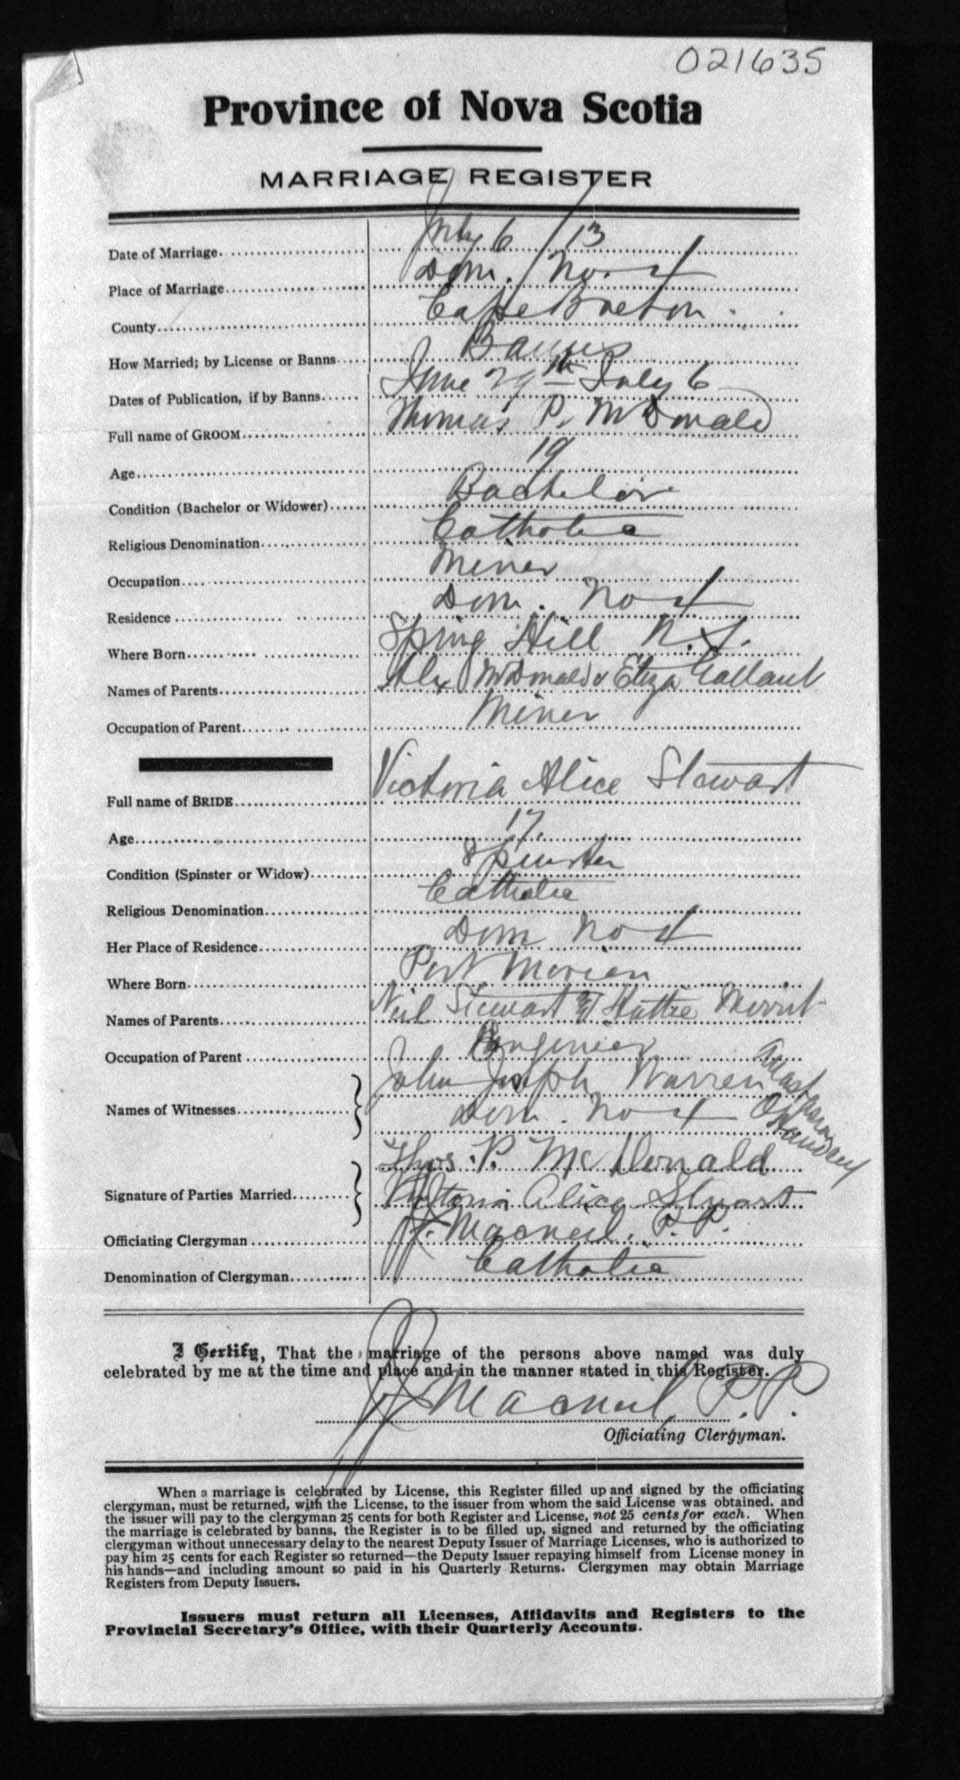 021635
Province of Nova Scotia
MARRIAGE REGISTER
Date of Marriage July 6/13
Place of Marriage Dom. No. 4
County Cape Breton
How Married; by License or Banns Banns
Dates of Publication, if by Banns June 29th July 6
Full name of GROOM Thomas P. McDonald
Age 19
Condition (Bachelor or Widower) Bachelor
Religious Denomination Catholic
Occupation Miner
Residence Dom. No 4
Where Born Spring Hill N.S.
Names of Parents Alex McDonald & Eliza Gallant
Occupation of Parent Miner
Full name of BRIDE Victoria Alice Stewart
Age 17
Condition (Spinster or Widow) Spinster
Religious Denomination Catholic
Her Place of Residence Dom No 4
Where Born Port Morien
Names of Parents Neil Stewart & Hattie Merrit
Occupation of Parent Engineer
Names of Witnesses John Joseph Warren
Dom. No 4
Signature of Parties Married Thos. P. McDonald
Victoria Alice Stuart
Officiating Clergyman J. J. Macneil, P. P.
Denomination of Clergyman Catholic
I Certify, That the marriage of the persons above named was duly
celebrated by me at the time and place and in the manner stated in this Register.
J. J. Macneil, P. P.
Officiating Clergyman.
When a marriage is celebrated by License, this Register filled up and signed by the officiating
clergyman, must be returned, with the License, to the issuer from whom the said License was obtained, and
the issuer will pay to the clergyman 25 cents for both Register and License, not 25 cents for each. When
the marriage is celebrated by banns, the Register is to be filled up, signed and returned by the officiating
clergyman without unnecessary delay to the nearest Deputy Issuer of Marriage Licenses, who is authorized to
pay him 25 cents for each Register so returned—the Deputy Issuer repaying himself from License money in
his hands—and including amount so paid in his Quarterly Returns. Clergymen may obtain Marriage
Registers from Deputy Issuers.
Issuers must return all Licenses, Affidavits and Registers to the
Provincial Secretary's Office, with their Quarterly Accounts.